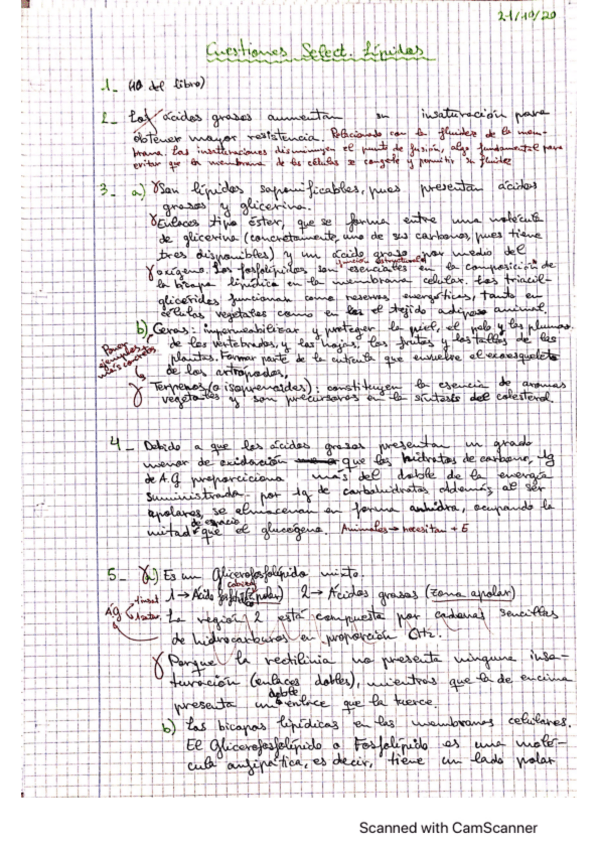 21/10/20
Cuestiones Select. Lípidos
1_ (10 del libro)
2_ Los ácidos grasos aumentan su insaturación para
obtener mayor resistencia. Relacionado con la fluidez de la mem-
brana. Las insaturaciones disminuyen el punto de fusión, algo fundamental para
evitar que la membrana de las células se congele y permitir su fluidez
3_ a) Son lípidos saponificables, pues presentan ácidos
grasos y glicerina.
Enlaces tipo éster, que se forma entre una molécula
de glicerina (concretamente, uno de sus carbonos, pues tiene
tres disponibles) y un ácido graso por medio del
función estructural
oxígeno. Los fosfolípidos son esenciales en la composición de
la bicapa lipídica en la membrana celular. Los triacil-
glicéridos funcionan como reservas energéticas, tanto en
células vegetales como en el tejido adiposo animal.
b) Ceras: impermeabilizar y proteger la piel, el pelo y las plumas
Poner ejemplos más concretos
de los vertebrados, y las hojas, los frutos y los tallos de las
plantas. Formar parte de la cutícula que envuelve el exoesqueleto
de los artrópodos.
Terpenos (o isoprenoides): constituyen la esencia de aromas
vegetales y son precursores en la síntesis del colesterol.
4_ Debido a que los ácidos grasos presentan un grado
menor de oxidación que los hidratos de carbono, 1g
de A.G proporciona más del doble de la energía
suministrada por 1g de carbohidratos. Además, al ser
apolares, se almacenan en forma anhidra, ocupando la
de espacio
mitad que el glucógeno. Animales → necesitan + E
5_ a) Es un Glicerofosfolípido mixto.
cabeza
1 → Ácido fosfatídico (polar) 2 → Ácidos grasos (zona apolar)
AG insat. satur.
La región 2 está compuesta por cadenas sencillas
de hidrocarburos en proporción CH2.
Porque la rectilinia no presenta ninguna insa-
turación (enlaces dobles), mientras que la de encima
doble
presenta un enlace que la tuerce.
b) Las bicapas lipídicas en las membranas celulares.
El Glicerofosfolípido o Fosfolípido es una molé-
cula anfipática, es decir, tiene un lado polar
Scanned with CamScanner